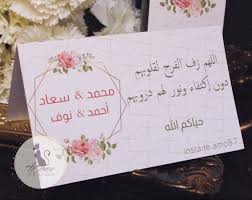 محمد & سعاد
أحمد & نوف
اللهم زف الفرح لقلوبهم
دون أكتفاء ونور لهم دروبهم
حياكم الله
insta:fe.amo87